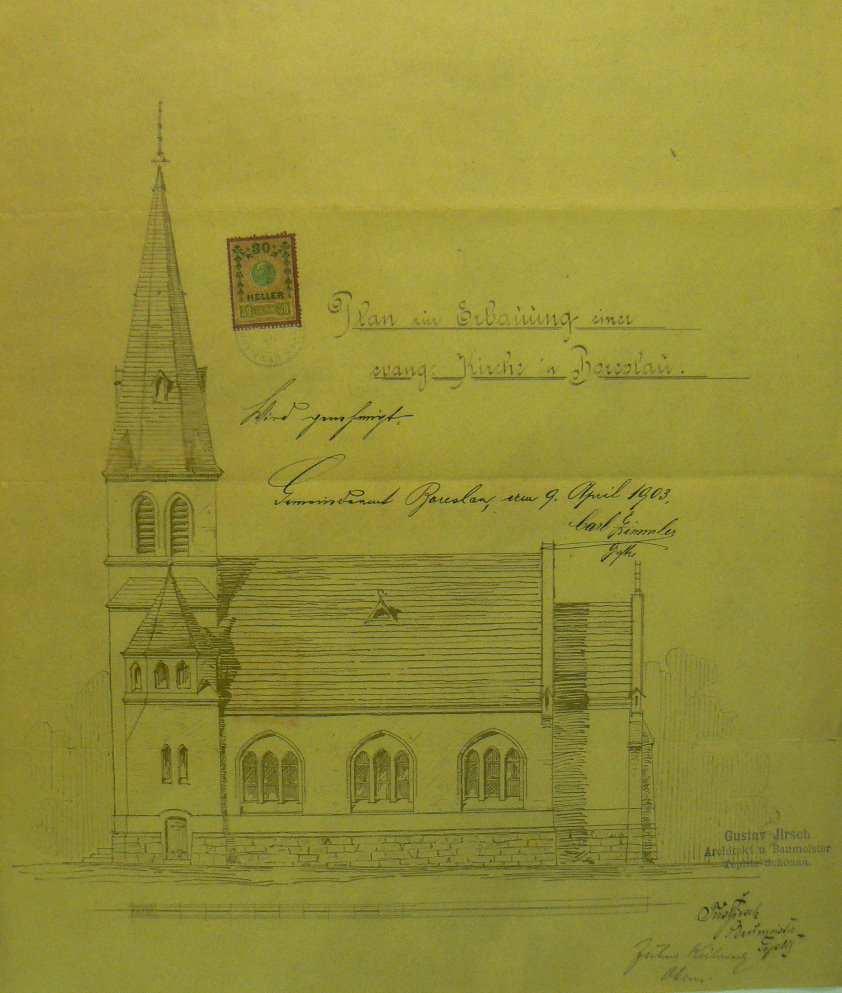 30
HELLER
Plan zur Erbauung einer
evang: Kirche in Boreslau.
Wird genehmigt.
Gemeindeamt Boreslau, am 9. April 1903.
Carl
Gustav Jirsch
Architekt u. Baumeister
Teplitz-Schönau.
Baumeister